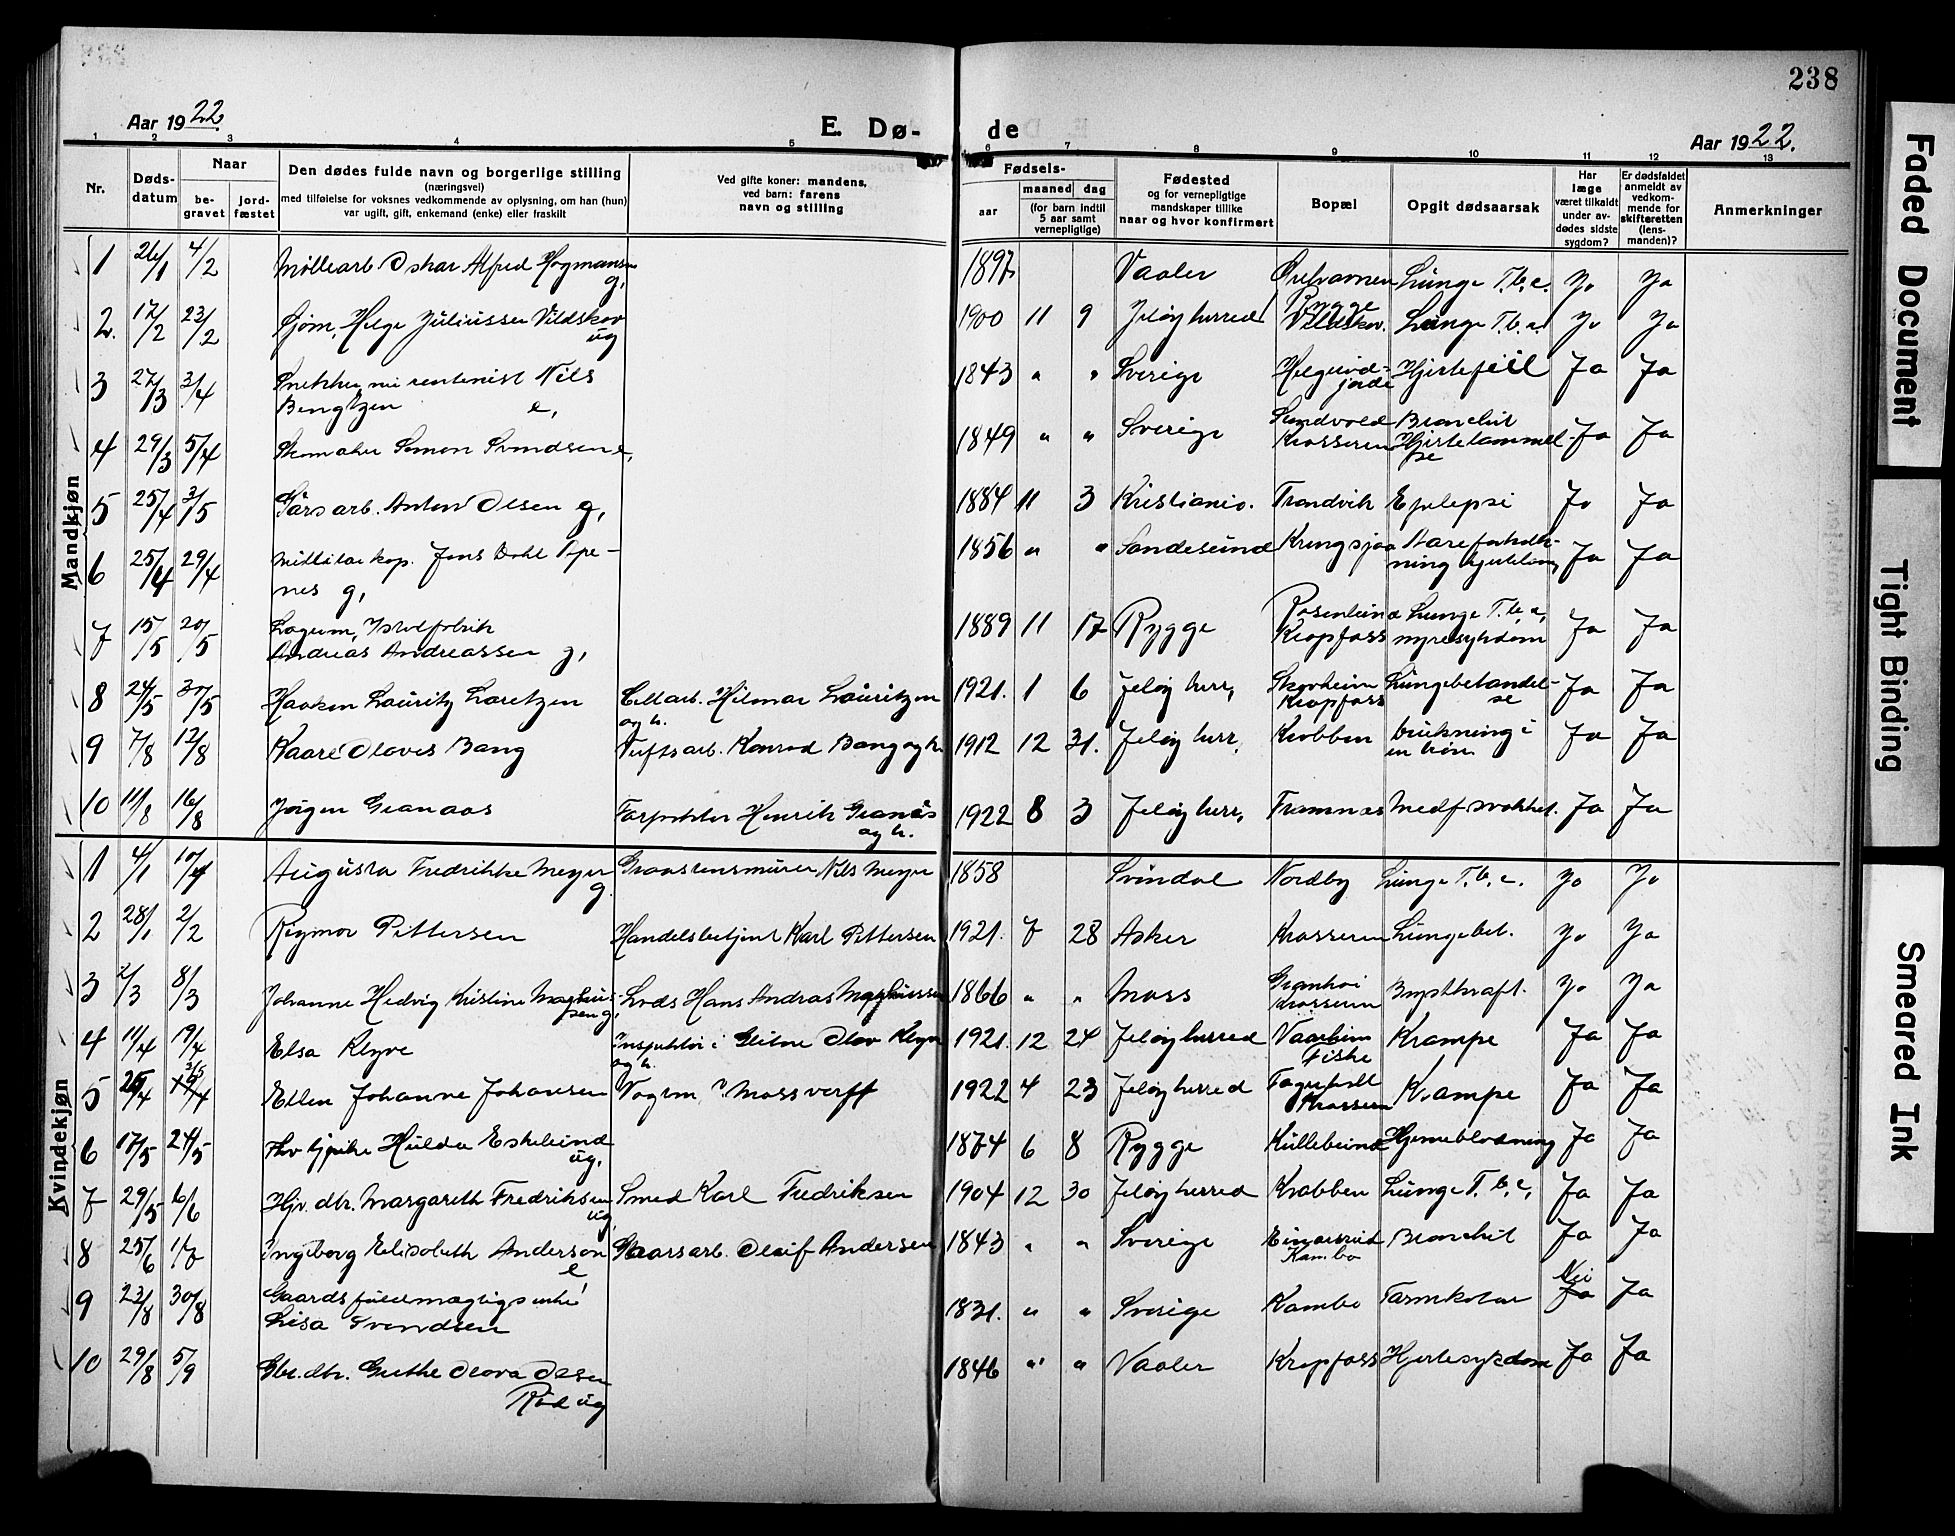 238
Aar 1922.
E. Dø-
de
Aar 1922.
1 2 3 4 5 6 7 8 9 10 11 12 13
Nr.
Døds-
datum
Naar
be-
gravet
jord-
fæstet
Den dødes fulde navn og borgerlige stilling
(næringsvei)
med tilføielse for voksnes vedkommende av oplysning, om han (hun)
var ugift, gift, enkemand (enke) eller fraskilt
Ved gifte koner: mandens,
ved barn: farens
navn og stilling
Fødsels-
aar
maaned
dag
(for barn indtil
5 aar samt
vernepligtige)
Fødested
og for vernepligtige
mandskaper tillike
naar og hvor konfirmert
Bopæl
Opgit dødsaarsak
Har
læge
været tilkaldt
under av-
dødes sidste
sygdom?
Er dødsfaldet
anmeldt av
vedkom-
mende for
skifteretten
(lens-
manden)?
Anmerkninger
Mandkjøn
1 26/1 4/2 Møllearb Oskar Alfred Hogmansen g, 1897 Vaaler Lunge T.b.c. Ja Ja
2. 17/2 23/2 Sjøm, Helge Juliussen Vildskov ug 1900 11 9 Jeløy herred Rygge Vildskov. Lunge T.b.c. Ja Ja
3 27/3 3/4 Nils
Bengtzen e, 1843 " " Sverige Hjertefeil Ja Ja
4 29/3 5/4 Skomaker Simon Svendsen e, 1849 " " Sverige Krosseren Bronchit Ja Ja
5 25/4 3/5 Anton Olsen g, 1884 11 3 Kristiania. Trondvik Epilepsi Ja Ja
6 25/4 29/4 Jens Dohl
nes g, 1856 " " Sandesund Kringsjaa Ja Ja
7 15/5 20/5
Andreas Andreassen g, 1889 11 17 Rygge Rosenlund Kropfoss Lunge T.b.c, Ja Ja
8 24/5 30/5 Haakon Lauritz Loretzen Cellarb. Hilmar Lauritzen og h. 1921. 1 6 Jeløy herr, Skovheim Kropfoss Lungebetændel-
se Ja Ja
9 7/8 12/8 Kaare Oloves Bang Verftsarb. Konrad Bang og h. 1912 12 31. Jeløy herr, Krobben drukning i
en brøn Ja Ja
10 11/8 16/8 Jørgen Granaas Henrik Granaas og h. 1922 8 3 Jeløy herr, Framnæs Medf. svakhet. Ja Ja
Kvindekjøn
1 4/1 10/1 Augusta Fredrikke Meyer g Graastensmurer Nils Meyer 1858 Svindal Nordby Lunge T.b.c. Ja Ja
2 28/1 2/2 Rigmor Pettersen Handelsbetjent Karl Pettersen 1921. 7 28 Asker Krosseren Lungebet. Ja Ja
3 2/3 8/3 Johanne Hedvig Kristine Maghus-
sen g, Lods Hans Andras Maghussen 1866 " " Moss Granhoi Krosseren Brystkræft. Ja Ja
4 11/4 19/4 Elsa Klyve Olav Klyve og h. 1921. 12 24 Jeløy herred Vaarheim Krampe Ja Ja
5 25/4 3/5 Ellen Johanne Johansen Moss verft 1922 4 23 Jeløy herred Krosseren Krampe Ja Ja
6 17/5 24/5 Hulda Eskelund ug, 1874 6 8 Rygge Kullebund Hjerneblødning Ja Ja
7 29/5 6/6 Hjv. dtr. Margareth Fredriksen ug, Smed Karl Fredriksen 1904 12 30 Jeløy herred Krabben Lunge T.b.c, Ja Ja
8 25/6 1/7 Ingeborg Elisabeth Anderson e, Olaif Andersen 1843 " " Sverige Kambo Bronchit Ja Ja
9 23/8 30/8 Gaards
Lisa Svendsen 1831. " " Sverige Kambo Tarmkatar Nei Ja Ja
10 29/8 5/9 Gbr. dtr. Grethe Olava Olsen
Rød ug 1846 " " Vaaler Kropfoss Hjertesykdom Ja Ja
Faded Document
Tight Binding
Smeared Ink